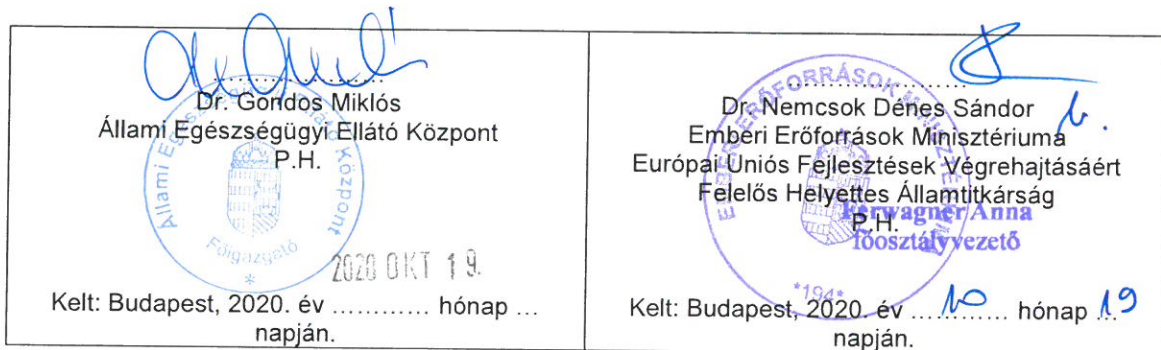 Dr. Gondos Miklós
Állami Egészségügyi Ellátó Központ
P.H.
Állami Egészségügyi Ellátó Központ
Főigazgató
*
2020 OKT 19.
Kelt: Budapest, 2020. év ………… hónap …
napján.
Dr. Nemcsok Dénes Sándor
Emberi Erőforrások Minisztériuma
Európai Uniós Fejlesztések Végrehajtásáért
Felelős Helyettes Államtitkárság
P.H.
EMBERI ERŐFORRÁSOK MINISZTÉRIUMA
*194*
Ferwagner Anna
főosztályvezető
Kelt: Budapest, 2020. év … 10 … hónap 19
napján.